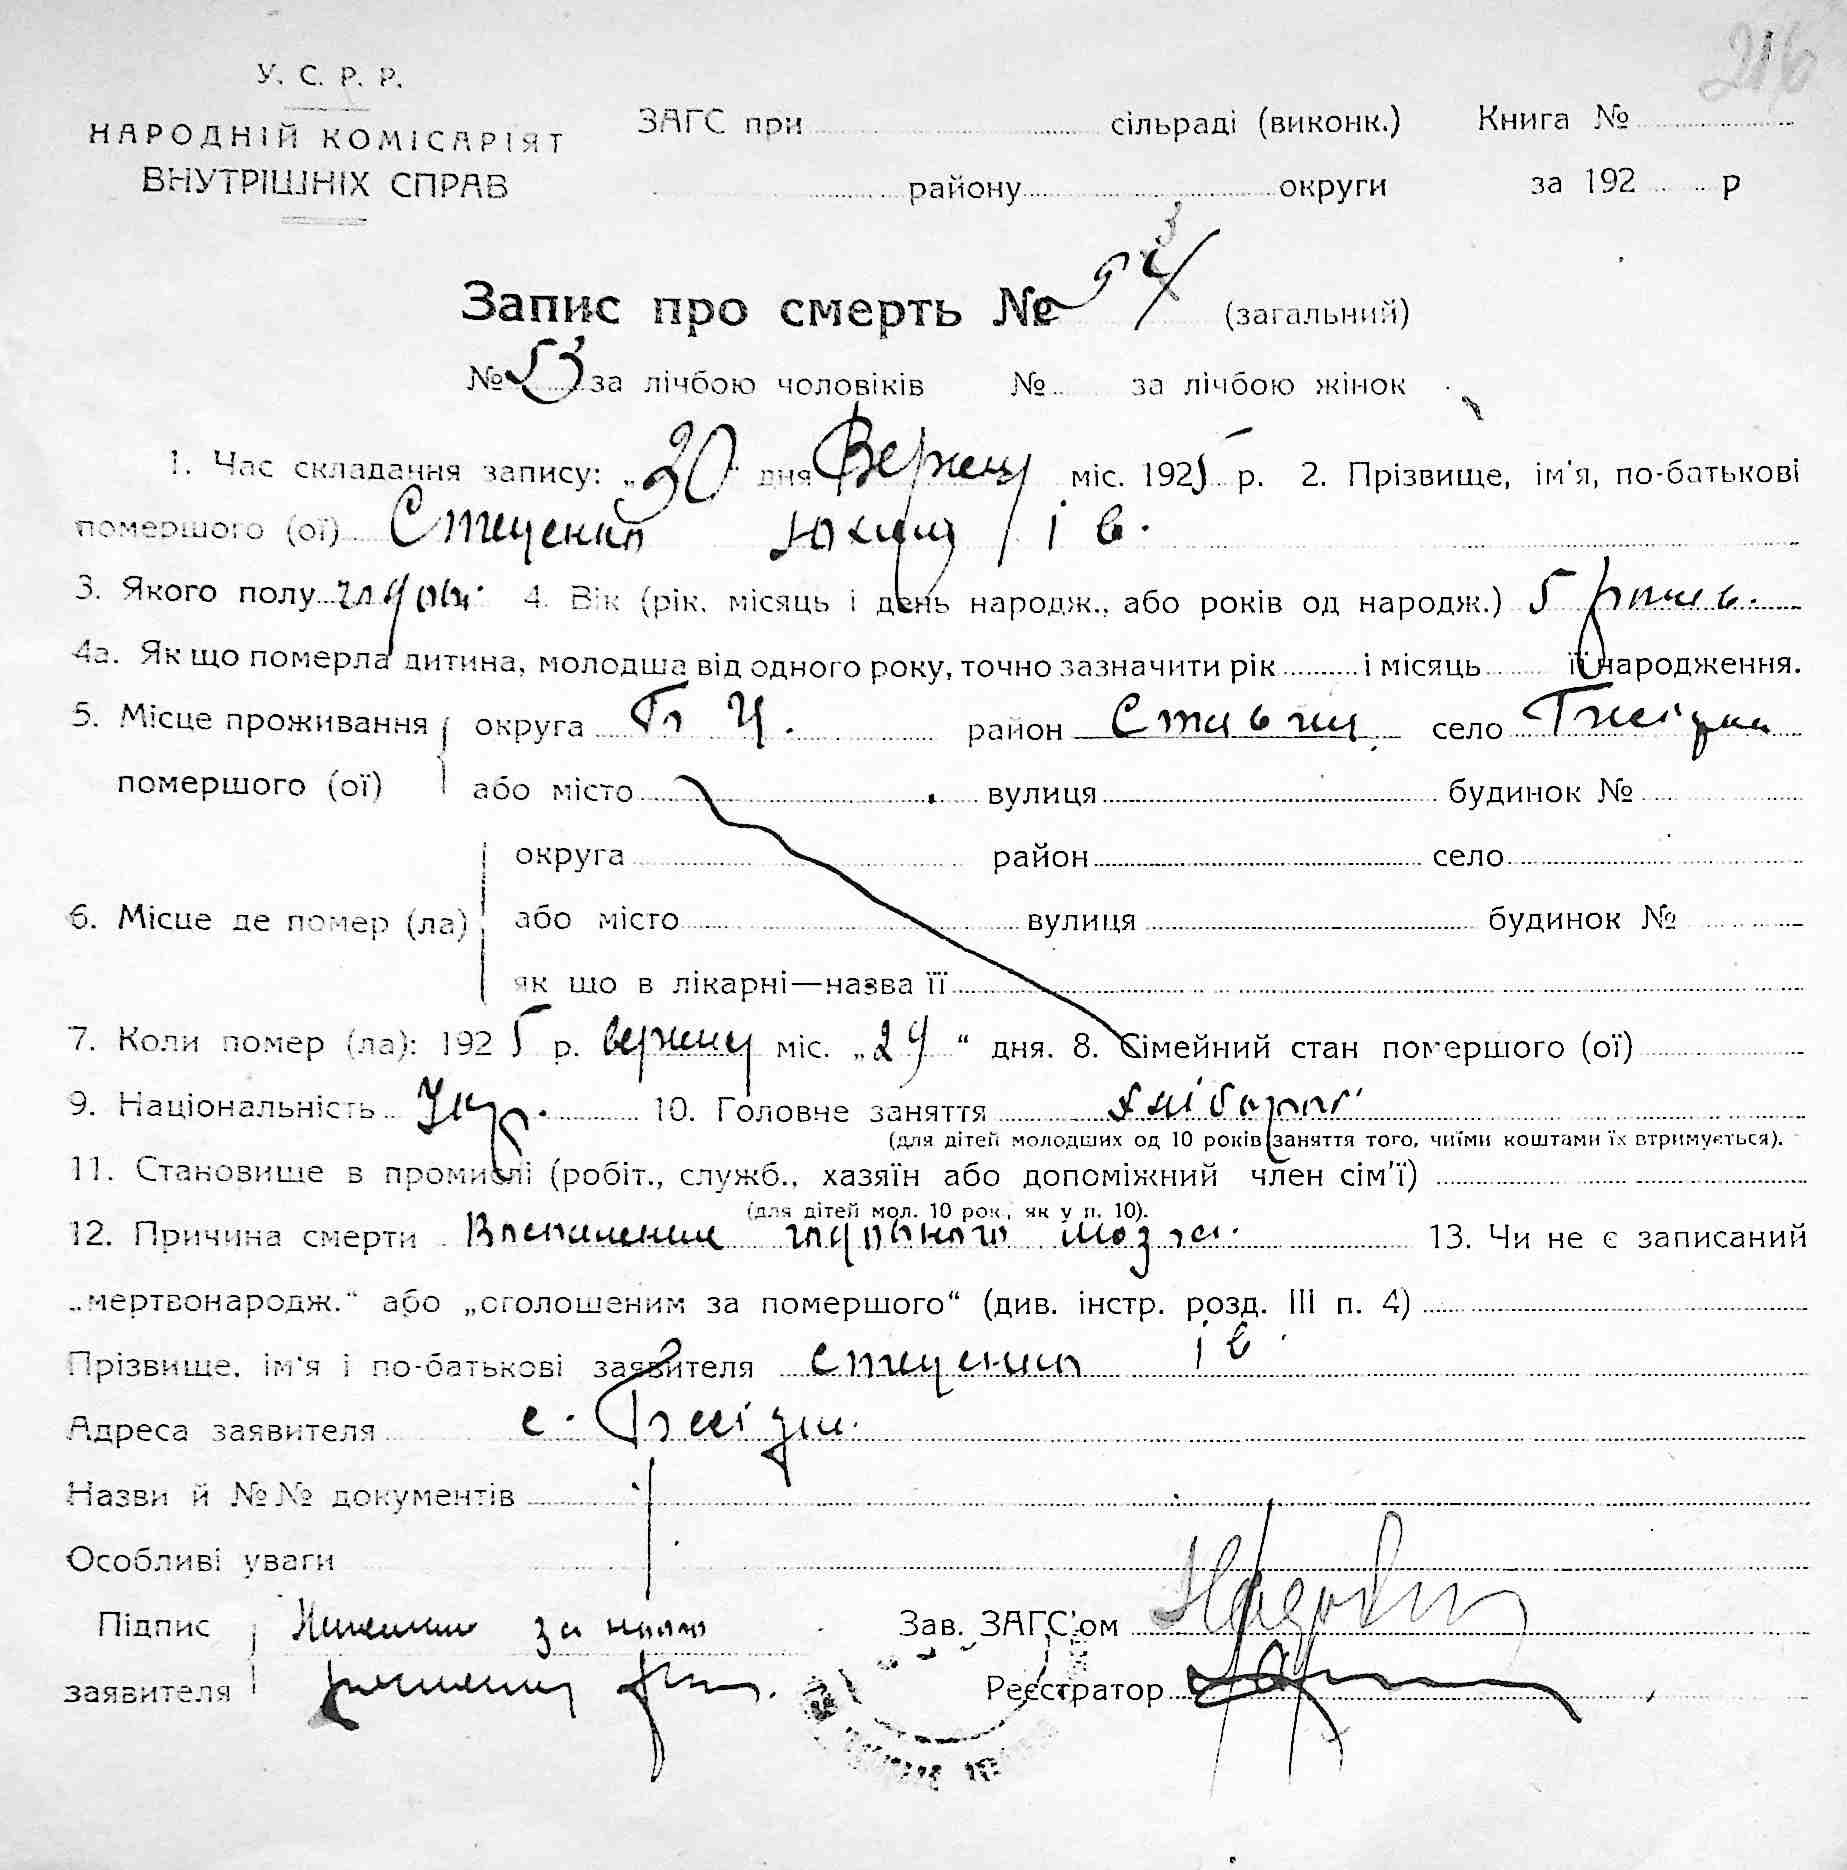 216
У. С. Р. Р.
НАРОДНІЙ КОМІСАРІЯТ
ВНУТРІШНІХ СПРАВ
ЗАГС при сільраді (виконк.) Книга №
району округи за 192 р
Запис про смерть № (загальний)
№ 53 за лічбою чоловіків № за лічбою жінок
1. Час складання запису: „30 дня Вересн міс. 1925 р. 2. Прізвище, ім'я, по-батькові
помершого (ої) Стеценко Юхим Ів.
3. Якого полу чолов. 4. Вік (рік, місяць і день народж., або років од народж.) 5 років.
4а. Як що померла дитина, молодша від одного року, точно зазначити рік і місяць її народження.
5. Місце проживання округа Б Ц. район Ставищ. село
помершого (ої) або місто вулиця будинок №
округа район село
6. Місце де помер (ла) або місто вулиця будинок №
як що в лікарні—назва її
7. Коли помер (ла): 1925 р. вересн міс. „29“ дня. 8. Сімейний стан помершого (ої)
9. Національність Укр. 10. Головне заняття хлібороб
(для дітей молодших од 10 років заняття того, чиїми коштами їх втримується).
11. Становище в промислі (робіт., служб., хазяїн або допоміжний член сім'ї)
(для дітей мол. 10 рок., як у п. 10).
12. Причина смерти Воспаление головного мозга. 13. Чи не є записаний
„мертвонародж.“ або „оголошеним за помершого“ (див. інстр. розд. III п. 4)
Прізвище, ім'я і по-батькові заявителя Стеценко Ів
Адреса заявителя с.
Назви й №№ документів
Особливі уваги
Підпис за Зав. ЗАГС'ом
заявителя Реєстратор